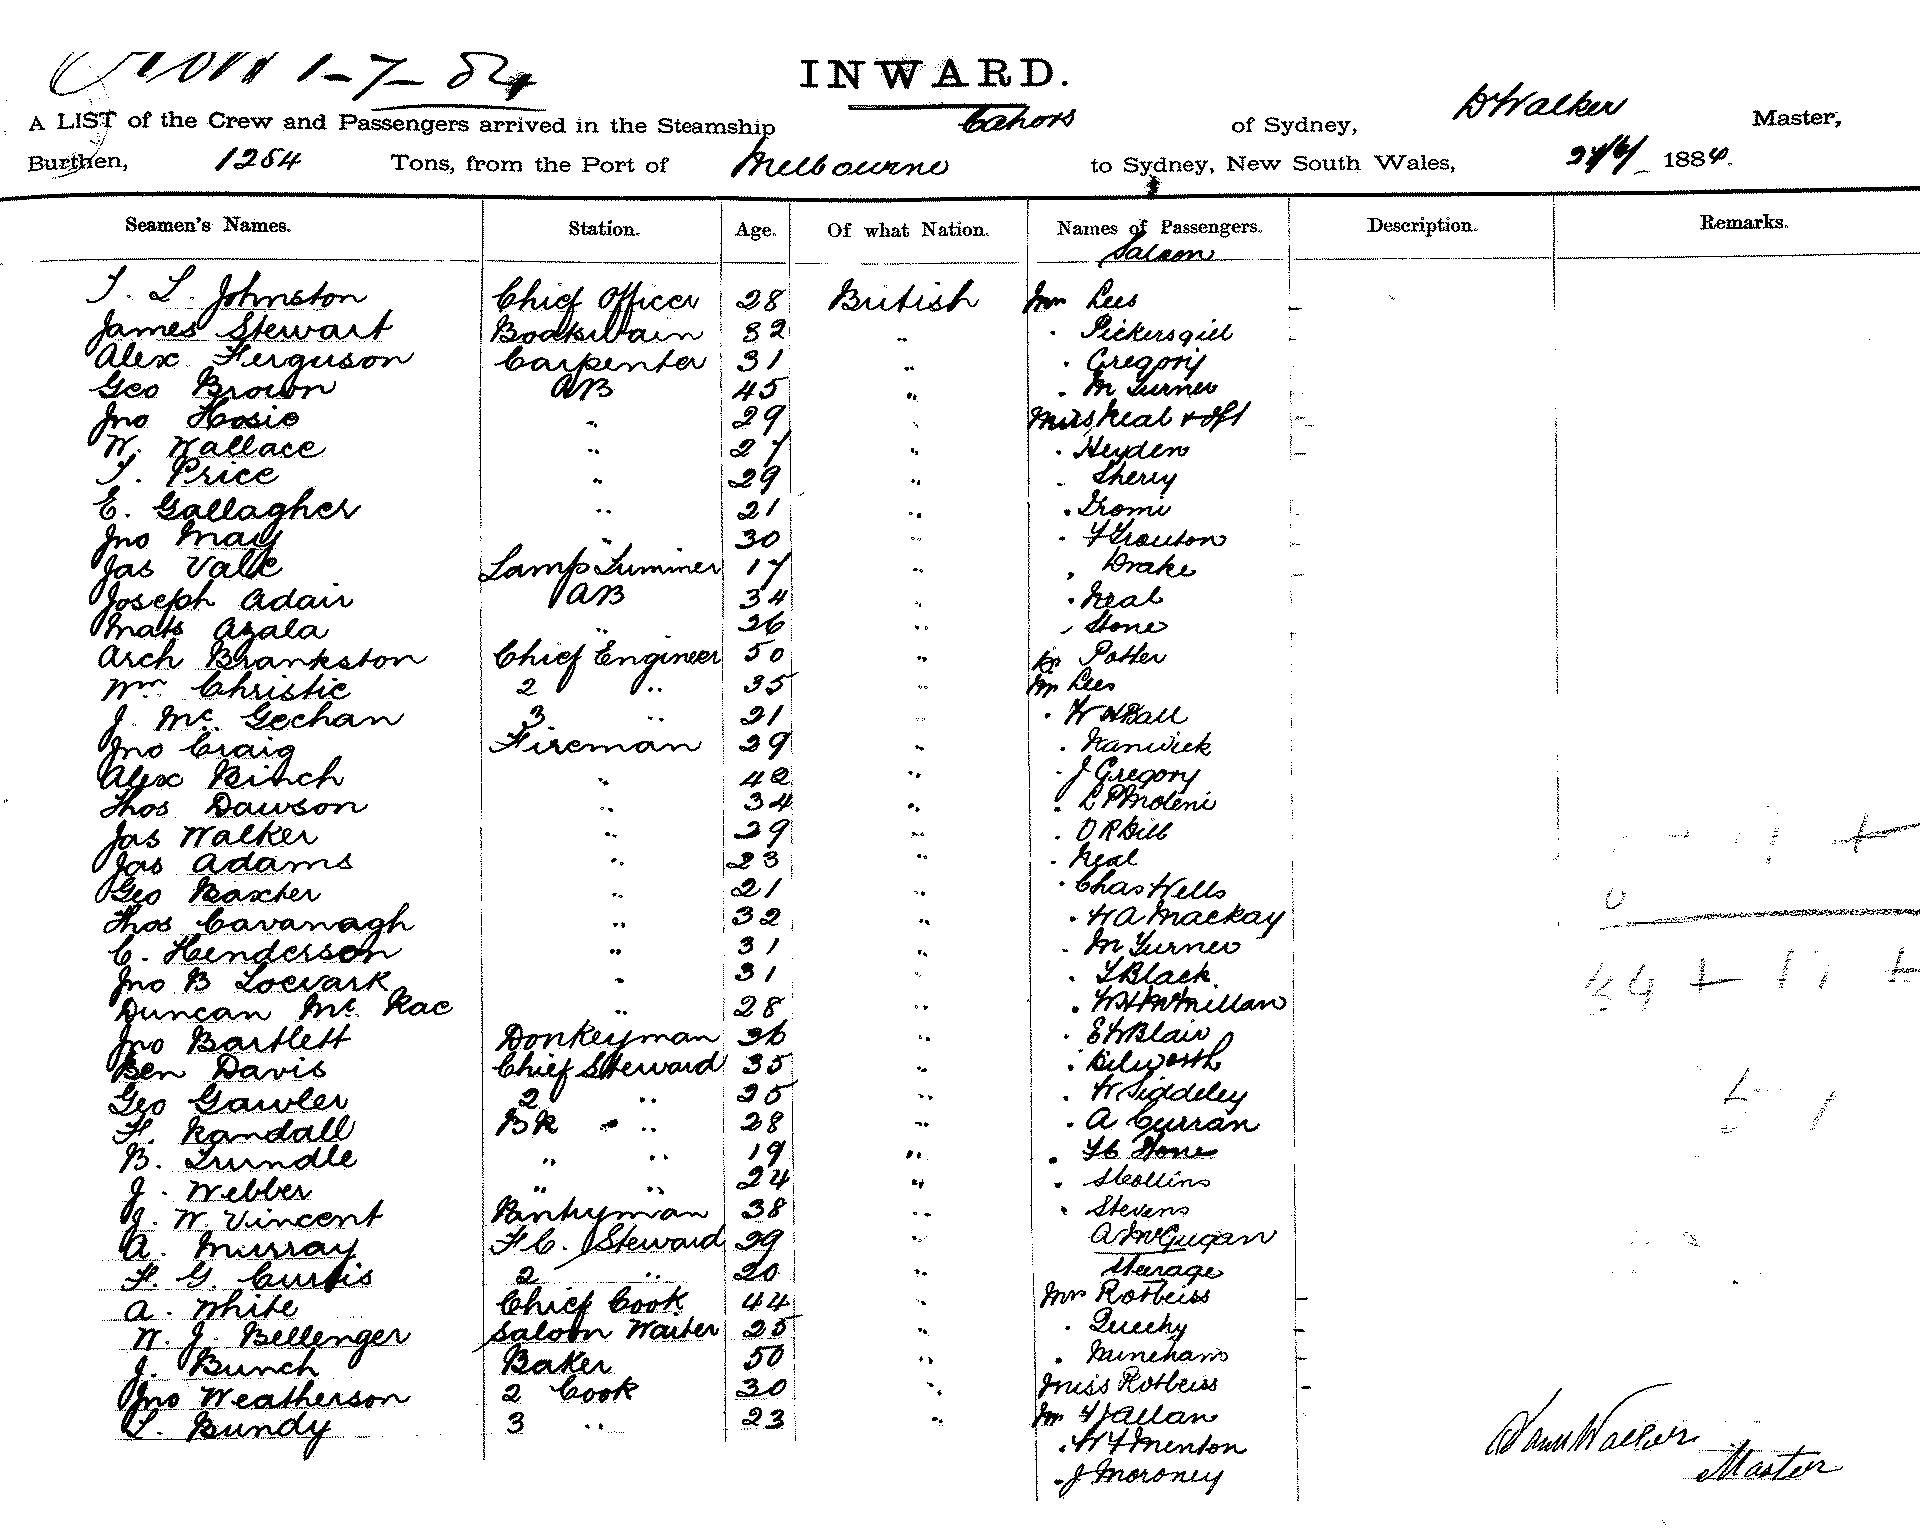 1-7-84
INWARD.
A LIST of the Crew and Passengers arrived in the Steamship Cahors of Sydney, D Walker Master,
Burthen, 1254 Tons, from the Port of Melbourne to Sydney, New South Wales, 1884.
Seamen's Names. Station. Age. Of what Nation. Names of Passengers. Description. Remarks.
Saloon
T. L. Johnston Chief Officer 28 British Mrs Lees
James Stewart Boatswain 32 " " Pickersgill
Alex Ferguson Carpenter 31 " " Gregory
Geo Brown AB 45 " " M Turner
Jno Hosie " 29 " Miss Neal
W. Wallace " 27 " " Heyden
T. Price " 29 " " Sherry
E. Gallagher " 21 " " Tromi
Jno May " 30 " "
Jas Vale Lamp Trimmer 17 " " Drake
Joseph Adair AB 34 " " Neal
Mats Azala " 26 " " Stone
Arch Brankston Chief Engineer 50 " Potter
Wm Christie 2 " 35 " Mr Lees
J. Mc Gechan 3 " 21 " " W H Ball
Jno Craig Fireman 29 " "
Alex Binch " 42 " " J Gregory
Thos Dawson " 34 " "
Jas Walker " 29 " "
Jas Adams " 23 " " Neal
Geo Baxter " 21 " " Chas Wells
Thos Cavanagh " 32 " " W A Mackay
C. Henderson " 31 " " M Turner
Jno B Locvark " 31 " " T Black
Duncan Mc Rae " 28 " " W H McMillan
Jno Bartlett Donkeyman 36 " " E W Blair
Ben Davis Chief Steward 35 " " Dilworth
Geo Gawler 2 " 25 " " W Siddeley
F. Randall BK " " 28 " " A Curran
B. Trundle " " 19 " "
J. Webber " " 24 " " S Collins
J. W. Vincent Pantryman 38 " " Stevens
A. Murray F C. Steward 29 " A McGugan
F. G. Curtis 2 " 20 " Steerage
A. White Chief Cook 44 " Mrs Rotbeiss
W. J. Bellenger Saloon Waiter 25 " " Quechy
J. Bunch Baker 50 " " Minehans
Jno Weatherson 2 Cook 30 " Miss Rotbeiss
L. Bundy 3 " 23 " Mr Allan
" W F Menton
" J Moroney
Danl Walker
Master